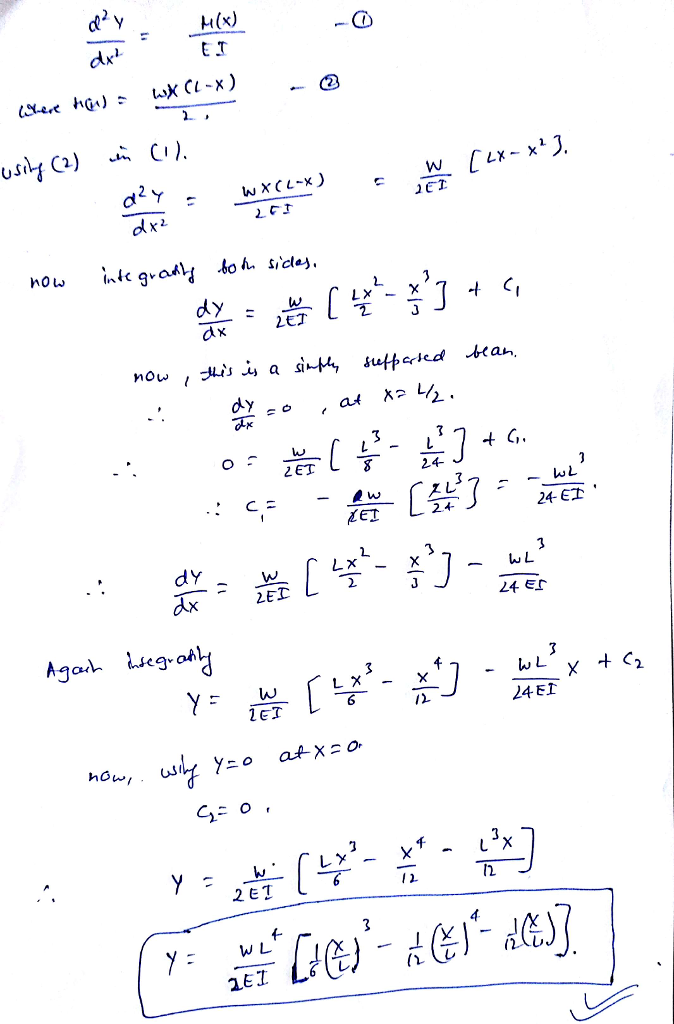 d²y/dx² = M(x)/EI - ①
where M(x) = wx(L-x)/2, - ②
using (2) in (1).
d²y/dx² = wx(L-x)/2EI = w/2EI [Lx-x²].
now integrating both sides.
dy/dx = w/2EI [Lx²/2 - x³/3] + C₁
now, this is a simply supported beam.
∴ dy/dx = 0, at x = L/2.
∴ 0 = w/2EI [L³/8 - L³/24] + C₁.
∴ C₁ = - w/2EI [2L³/24] = - wL³/24EI.
∴ dy/dx = w/2EI [Lx²/2 - x³/3] - wL³/24EI
Again integrating
y = w/2EI [Lx³/6 - x⁴/12] - wL³/24EI x + C₂
now, using y=0 at x=0.
C₂ = 0,
∴ y = w/2EI [Lx³/6 - x⁴/12 - L³x/12]
y = wL⁴/2EI [1/6(x/L)³ - 1/12(x/L)⁴ - 1/12(x/L)].